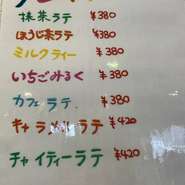 抹茶ラテ ¥380
ほうじ茶ラテ ¥380
ミルクティー ¥380
いちごみるく ¥380
カフェラテ. ¥380
キャラメルラテ ¥420
チャイティーラテ ¥420